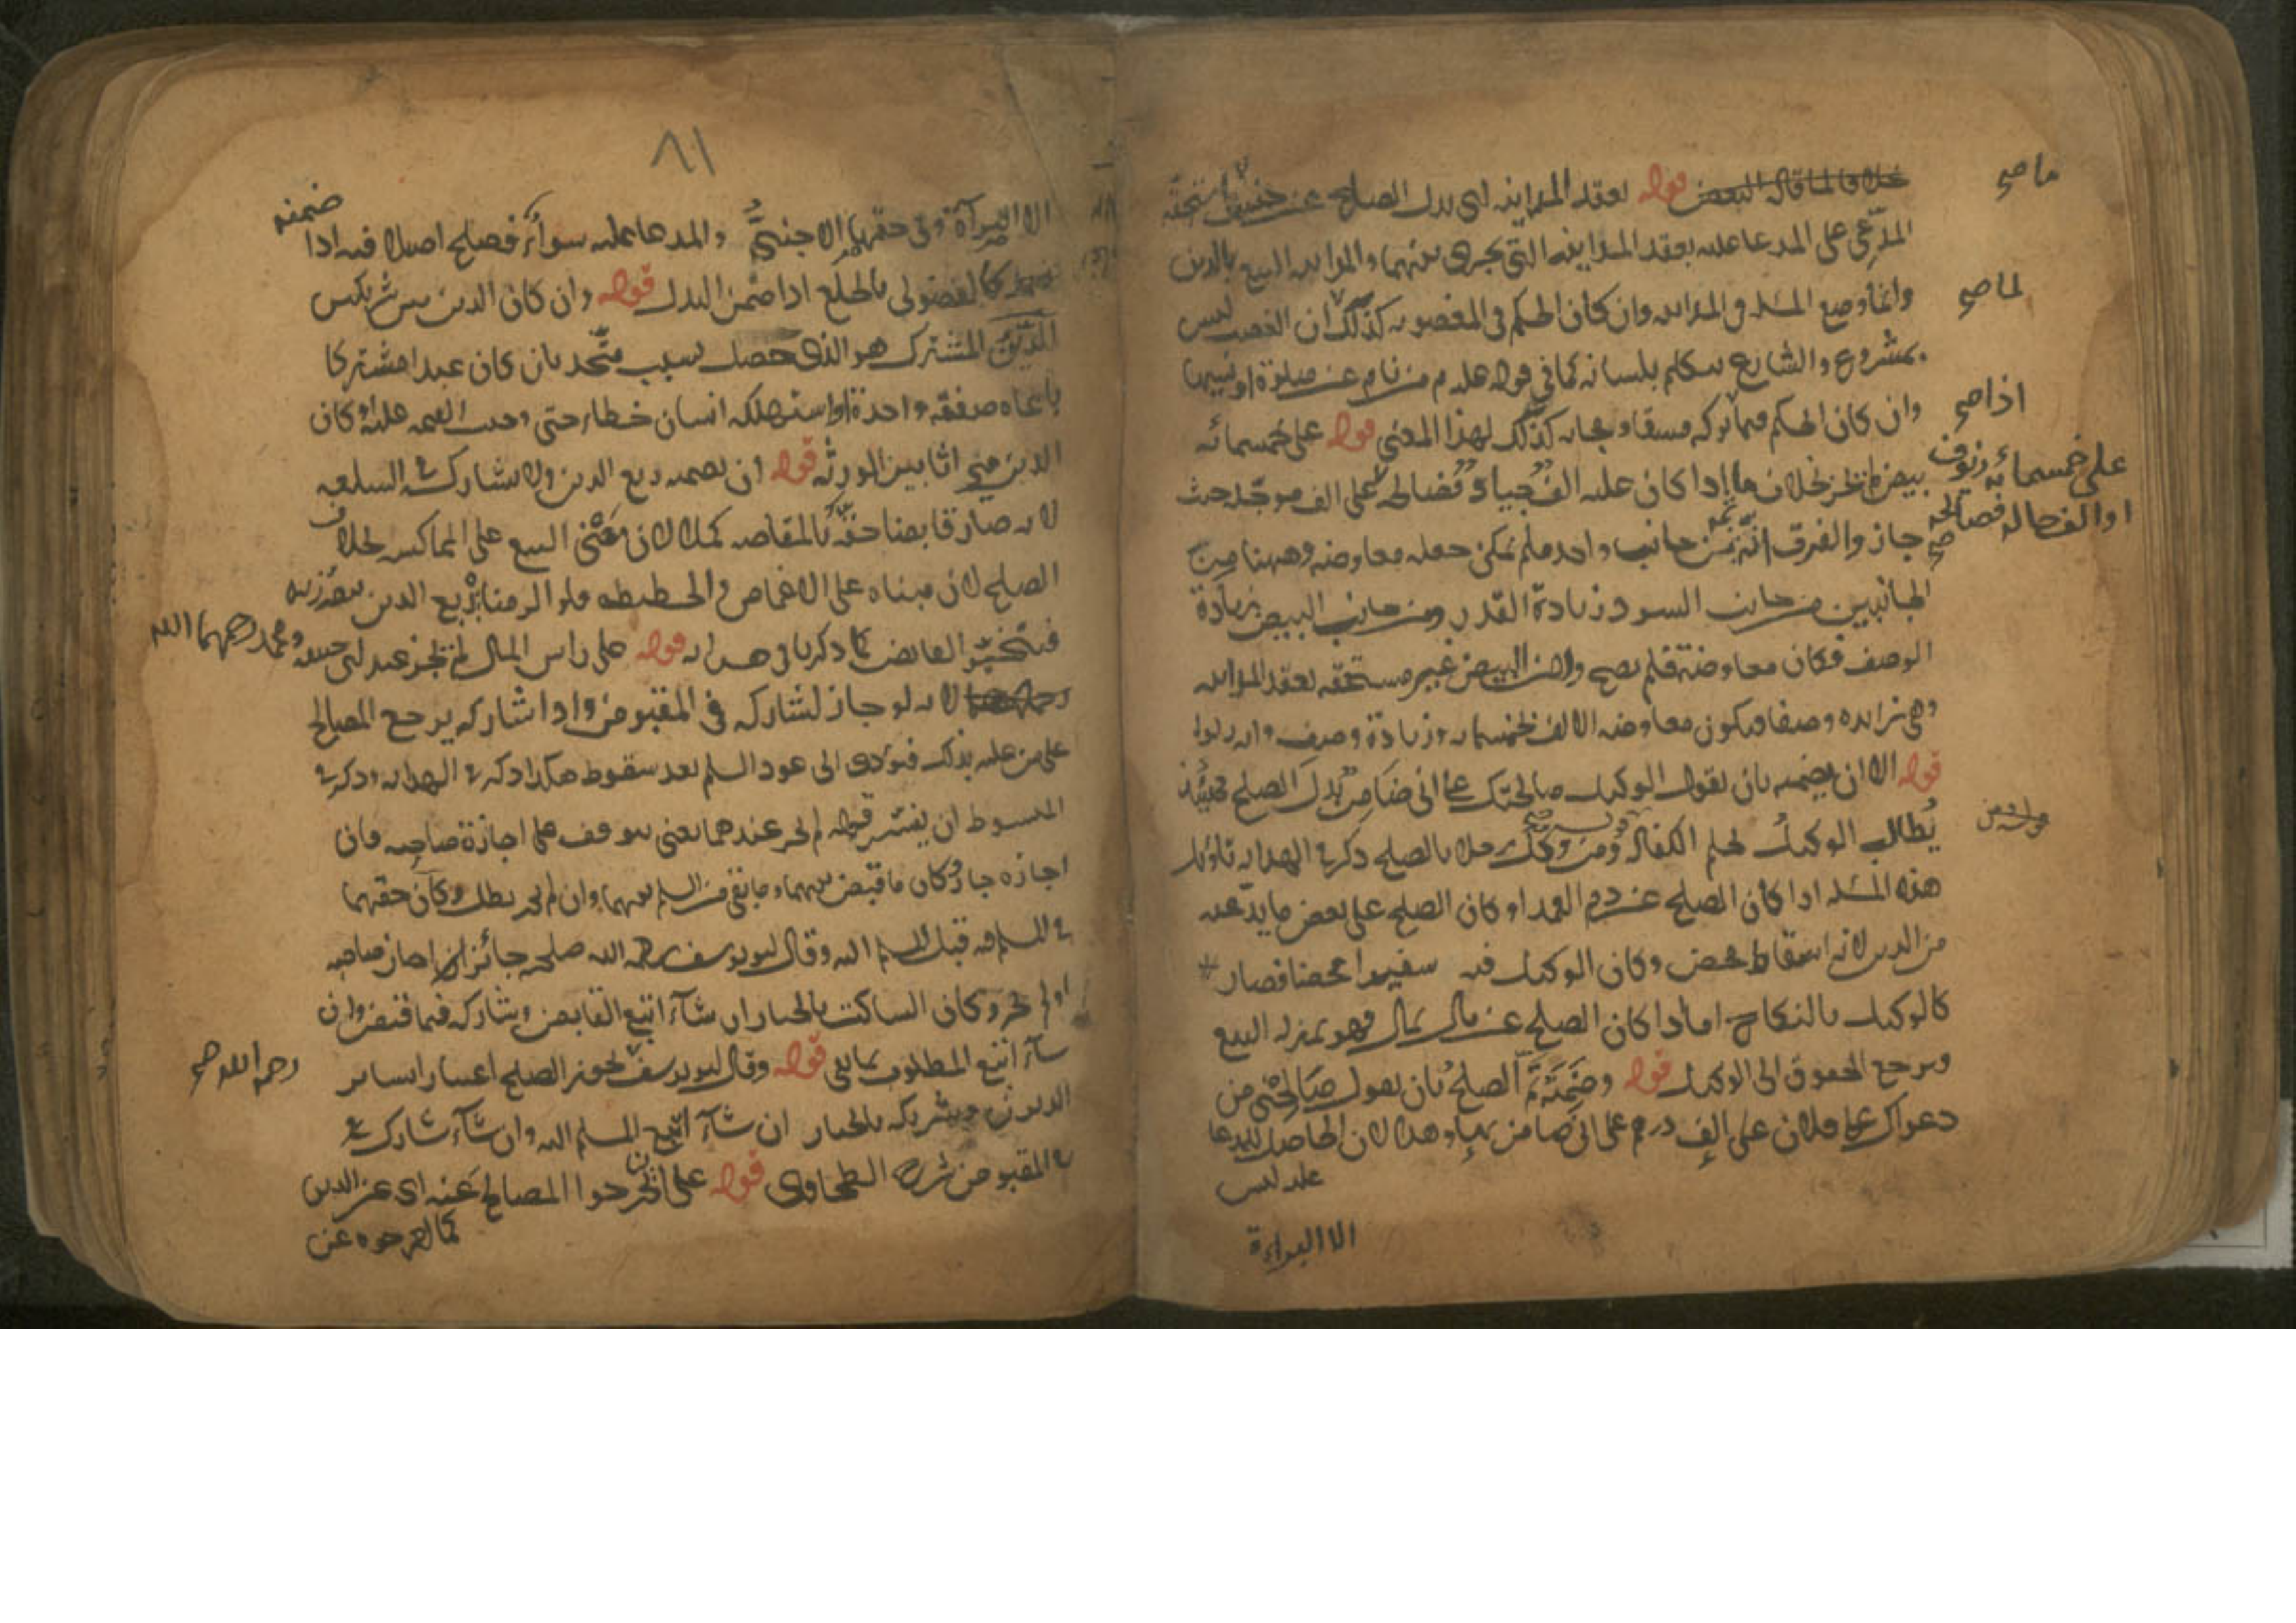 خلافا لما قال البعض قوله بعقد المداينه اى بدل الصلح عن جنس ما يستحقه
ما صح
المدّعى على المدعا عليه بعقد المداينه التى يجرى بينهما والمداينه البيع بالدين
وانما وضع المسئله فى المداينه وان كان الحكم فى المغصوب كذلك لان الغصب ليس
لما صح
بمشروع والشارع يتكلم بلسانه كما فى قوله عليه م من نام عن صلوة او نسيها
وان كان الحكم فيما تركه فسقا ومجانه كذلك لهذا المعنى قوله على خمسمائه
اذا صح
بيض لم يجز بخلاف ما اذا كان عليه الف جياد فصالحه على الف موجّله حيث
على خمسمائه زيوف
او الف حاله فصالحه صح
جاز والفرق انّه ثمه من جانب واحد فلم يمكن جعله معاوضه وههنا من
الجانبين من جانب السود زيادة القدر ومن جانب البيض زيادة
الوصف فكان معاوضة فلم يصح ولان البيض غير مستحقه بعقد المداينه
وهى زايده وصفا فيكون معاوضه الالف بخمسمايه وزيادة وصف وانه ربوا
قوله الا ان يضمنه بان يقول الوكيل صالحتك على انى ضامن بدل الصلح فحينئذ
يُطالب الوكيل بحكم الكفاله ومن وكّل رجلا بالصلح ذكر فى الهدايه تاويل
هذه المسئله اذا كان الصلح عن دم العمد او كان الصلح على بعض ما يدّعيه
من الدين لانه اسقاط محض وكان الوكيل فيه سفيرا محضا فصار
كالوكيل بالنكاح اما اذا كان الصلح عن مال بمال فهو بمنزله البيع
ويرجع الحقوق الى الوكيل قوله وضمنه تمّ الصلح بان يقول صالحنى من
دعواك على فلان على الف درهم على انى ضامن بها وهذا لان الحاصل للمدعا
عليه ليس
الا البراءة
٨١
الا البرآة وفى حقها الاجنبىّ والمدعا عليه سوآء فصلح اصيلا فيه اذا
ضمنه
كالفضولى بالخلع اذا ضمن البدل قوله وان كان الدين بين شريكين
الدّين المشترك هو الذى حصل بسبب متّحد بان كان عبدا مشتركا
باعاه صفقه واحدة او استهلكه انسان خطاء حتى وجبت القيمه عليه او كان
الدين ميراثا بين الورثه قوله ان يضمنه ربع الدين ولا يشاركه فى السلعه
لانه صار قابضا حقّه بالمقاصه كملا لان مبنى البيع على المماكسه بخلاف
الصلح لان مبناه على الاغماض والحطيطه فلو الزمناه ربع الدين يتضرر به
فيتخيّر القابض كما ذكرنا فى هدايه قوله على راس المال لم يجز عند ابى حنيفه
ومحمد رحمهما الله
لانه لو جاز لشاركه فى المقبوض واذا شاركه يرجع المصالح
على من عليه بذلك فيؤدى الى عود السلم بعد سقوطه هكذا ذكر فى الهدايه وذكر فى
المبسوط ان يفسر قوله لم يجز عندهما يعنى يتوقف على اجازة صاحبه فان
اجازه جاز وكان ما قبض بينهما وما بقى من السلم بينهما وان لم يجز بطل وكان حقهما
فى السلم قبل المسلم اليه وقال ابو يوسف رحمه الله صلحه جائز ان اجاز صاحبه
او لم يجز وكان الساكت بالخيار ان شآء اتبع القابض وشاركه فيما قبض وان
شآء اتبع المطلوب بما بقى قوله وقال ابو يوسف يجوز الصلح اعتبارا بساير
رحمه الله صح
الديون وشريكه بالخيار ان شآء اتّبع المسلم اليه وان شآء شاركه فى
فى المقبوض شرح الطحاوى قوله على ان يخرجوا المصالح عنه اى عن الدين
كما اخرجوه عن